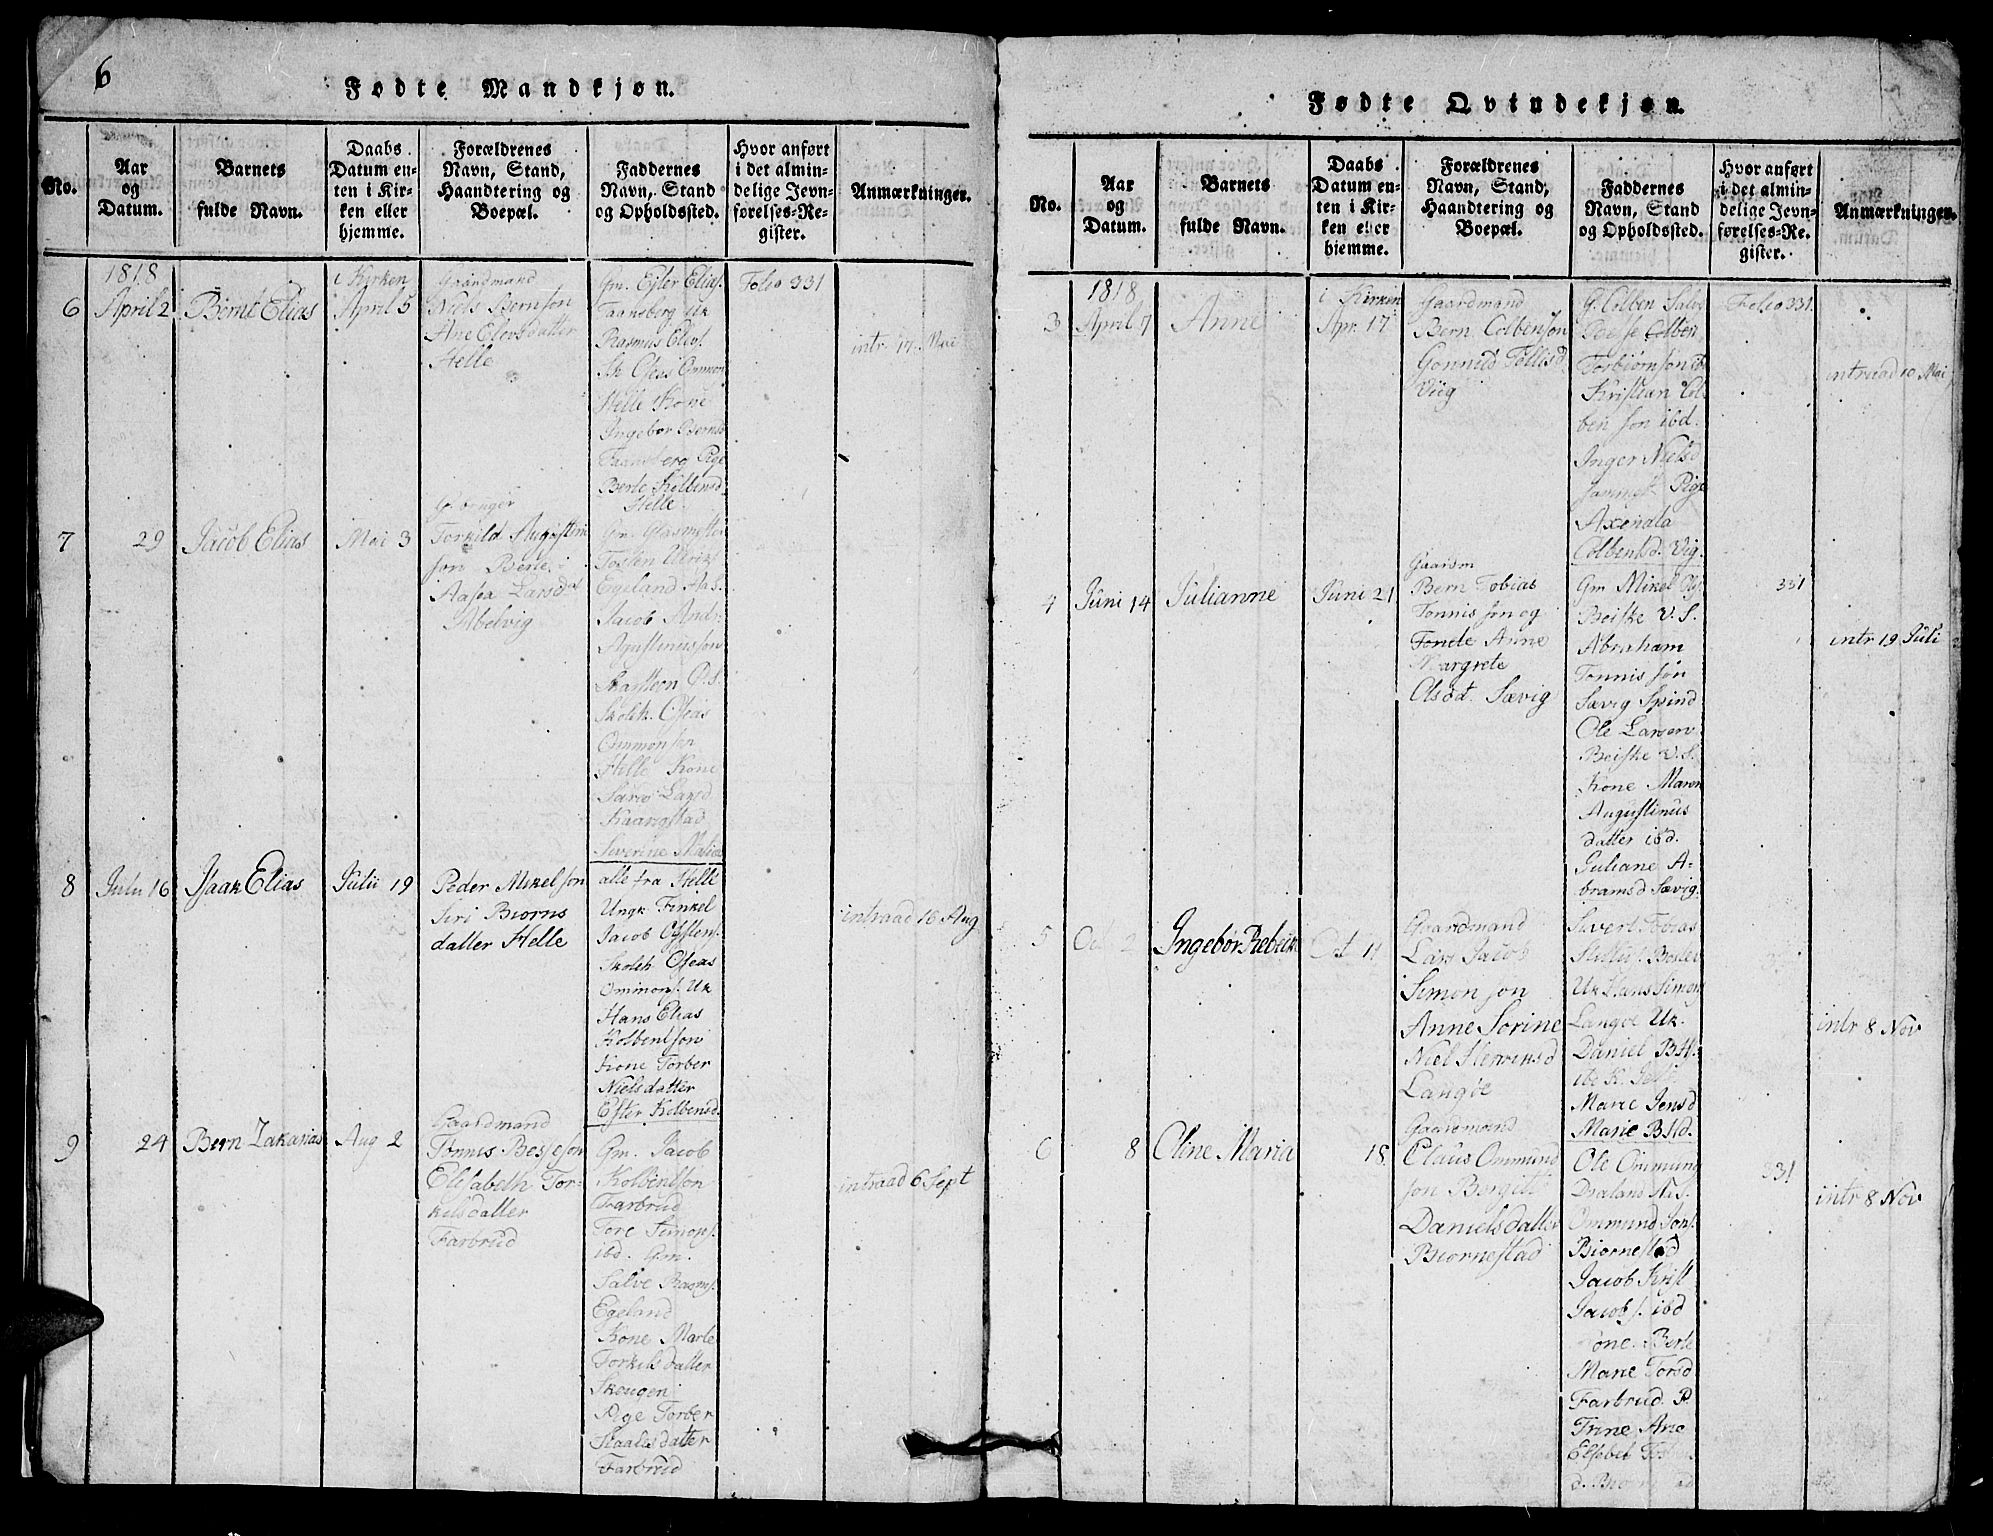 6
Fødte Mandkjøn.
No.
Aar
og
Datum.
Barnets
fulde Navn.
Daabs
Datum en-
ten i Kir-
ken eller
hjemme.
Forældrenes
Navn, Stand,
Haandtering og
Boepæl.
Faddernes
Navn, Stand
og Opholdssted.
Hvor anført
i det almin-
delige Jevn-
førelses-Re-
gister.
Anmærkninger.
1818
6
April 2
Bernt Elias
i Kirken
April 5
Gaardmand
Niels Bernson
Ane Elevsdatter
Helle
Gm. Ejler Elias.
Faansberg Uk
Rasmus Elias.
Sk Oseas Ommon
Helle Kone
Ingebor Bernts
Faansberg Pige
Berte Kolbensd.
Helle.
Folio 331
intr. 17. Mai
7
29
Jacob Elias
Mai 3
Torkild Augustin
son Berte
Aasea Larsd
Abelvig
Tosten Ulriks
Egeland Aa S.
Jacob Andr
Agustinusson
Skolh. Oseas
Ommonson
Helle Kone
Sara Larsd
Kaangstad
Siverine Malia
8
Julii 16
Isaak Elias
Julii 19
Peder Mikelson
Siri Biorns
datter Helle
alle fra Helle
Ungk Finkel
Jacob Ostens.
Skolh Oseas
Ommons. Uk
Hans Elias
Kolbentson
Kone Torber
Nielsdatter
Ester Kolbensd.
intraad 16 Aug
9
24
Bern Zakarias
Aug 2
Gaardmand
Tønnis Bessesøn
Elisabeth Tor-
kelsdatter
Farbrud
Gm. Jacob
Kolbentson
Farbrud
Tore Simons.
ibd. Gm.
Salve Rasms.
Egeland
Kone Marte
Torkelsdatter
Skougen
Pige Torber
Staalesdatter
Farbrud
intraad 6 Sept
Fødte Qvindekjøn.
No.
Aar
og
Datum.
Barnets
fulde Navn.
Daabs
Datum en-
ten i Kir-
ken eller
hiemme.
Forældrenes
Navn, Stand,
Haandtering og
Boepæl.
Faddernes
Navn, Stand
og Opholdssted.
Hvor anført
i det almin-
delige Jevn-
førelses-Re-
gister.
Anmærkninger.
1818
3
April 7
Anne
i Kirken
Apr. 17
Gaardmand
Bern Colbenson
Gonnild Tollisd
Viig
G. Colben Salve
Besse Colben
Torbiørnson ib
Kristian Col
ben son ibd.
Inger Nielsd
sammest. Pige
Axenala
Colbentsd. Vig.
Folio 331
intraad 10 Mai
4
Juni 14
Julianne
Juni 21
Gaardm
Bern Tobias
Tonnis son og
Tonde Anne
Margrete
Olsdt. Sævig
Gm Mikel
Beiske V. S.
Abraham
Tonnis søn
Sævig Spind
Ole Larsen
Beiske V. S.
Kone Maren
Augustinus
datter ibd.
Juliane A-
bramsd Sævig.
331
intr 19 Juli
5
Oct 2
Ingebør Rebekk
Oct 11
Gaardmand
Lars Jacob
Simon son
Anne Sorine
Niel Henriksd
Langøe
Sivert Tobias
Uk Hans Simons
Langøe Uk.
Daniel B H.
Marie Jensd
Marie B Hd.
intr 8 Nov
6
8
Oline Maria
18
Gaardmand
Claus Ommund
son Bergitt
Danielsdatter
Biornestad
Ole Ommund
Ommund Jons.
Biornestad
Jacob Krist
Jacobs. ibd
Kone. Berte
Marie Torsd
Farbrud. P.
Trine Ano
Elsebet
331
intr 8 Nov